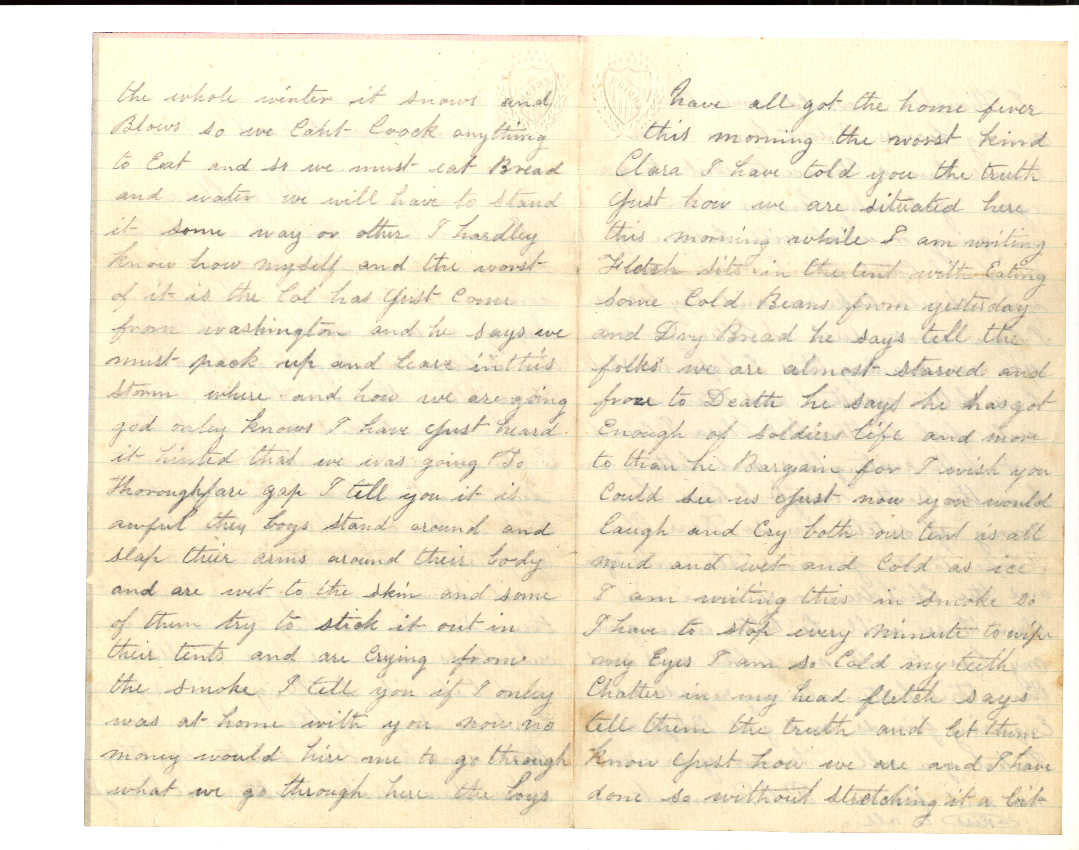 the whole winter it snows and
Blows so we Caht Coock anything
to Eat and so we must eat Bread
and water we will have to stand
it some way or other I hardley
know how myself and the worst
of it is the Col has Just Come
from washington and he says we
must pack up and leave in this
storm where and how we are going
god onley knows I have Just heard
it hinted that we was going To
Thoroughfare gap I tell you it is
awful they boys stand around and
slap their arms around their body
and are wet to the skin and some
of them try to stick it out in
their tents and are Crying from
the smoke I tell you if I onley
was at home with you now no
money would hire me to go through
what we go through here the boys
have all got the home fever
this morning the worst kind
Clara I have told you the truth
Just how we are situated here
this morning while I am writing
Fletch sits in the tent with Eating
some Cold Beans from yesterday
and Dry Bread he says tell the
folks we are almost starved and
froze to Death he says he has got
Enough of soldiers life and more
to than he Bargain for I wish you
Could see us Just now you would
laugh and Cry both our tent is all
mud and wet and Cold as ice
I am writing this in smoke so
I have to stop every Minnute to wipe
my Eyes I am so Cold my teeth
Chatter in my head fletch says
tell them the truth and let them
know Just how we are and I have
done so without stretching it a bit